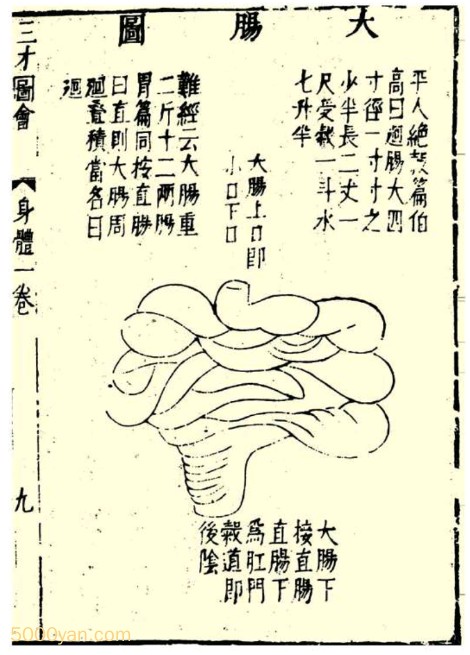 大腸圖
平人絕榖篇伯
高曰迴腸大四
寸徑一寸寸之
少半長二丈一
尺受榖一斗水
七升半
大腸上口即
小口下口
難經云大腸重
二斤十二兩腸
胃篇同按直腸
曰直則大腸周
迴叠積當名曰
迴
大腸下
接直腸
直腸下
為肛門
榖道即
後陰
三才圖會
身體一卷
九
5000yan.com